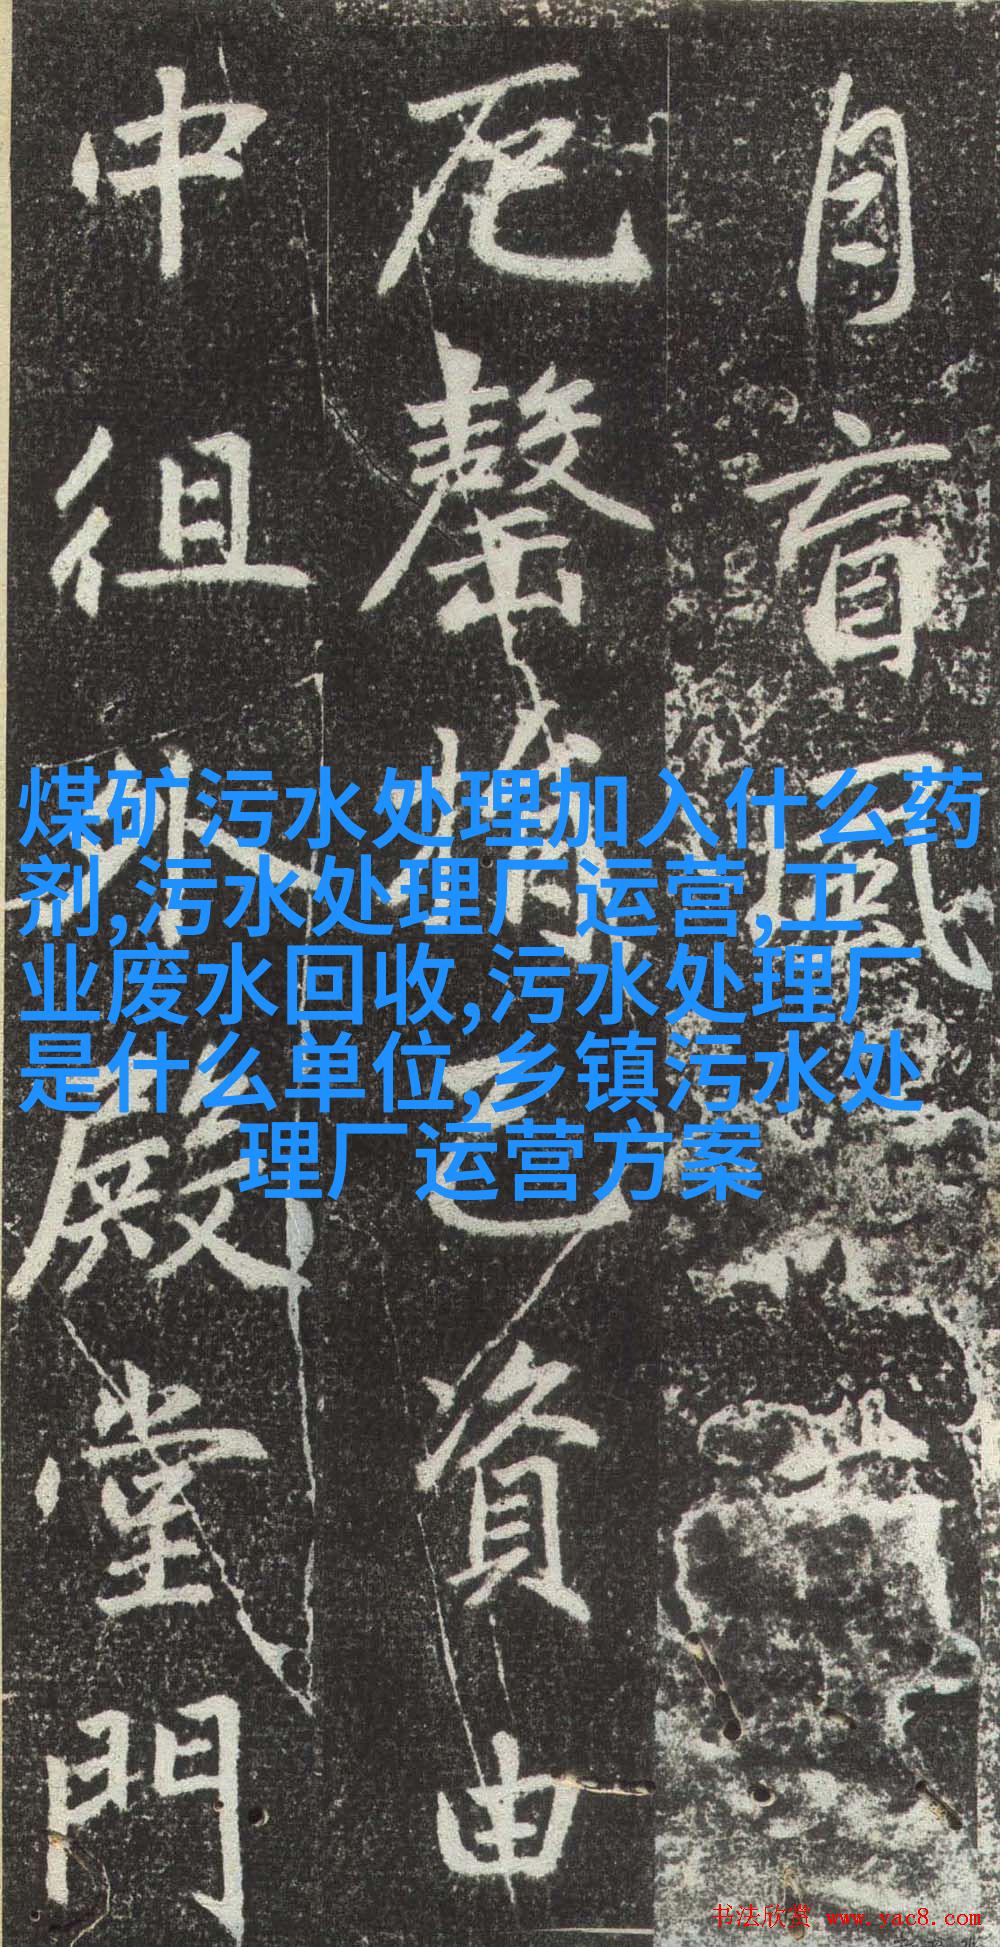 自盲風
厄罄
資由
中徂外
殿堂門
煤矿污水处理加入什么药
剂,污水处理厂运营,工
业废水回收,污水处理厂
是什么单位,乡镇污水处
理厂运营方案
书法欣赏 www.yac8.com